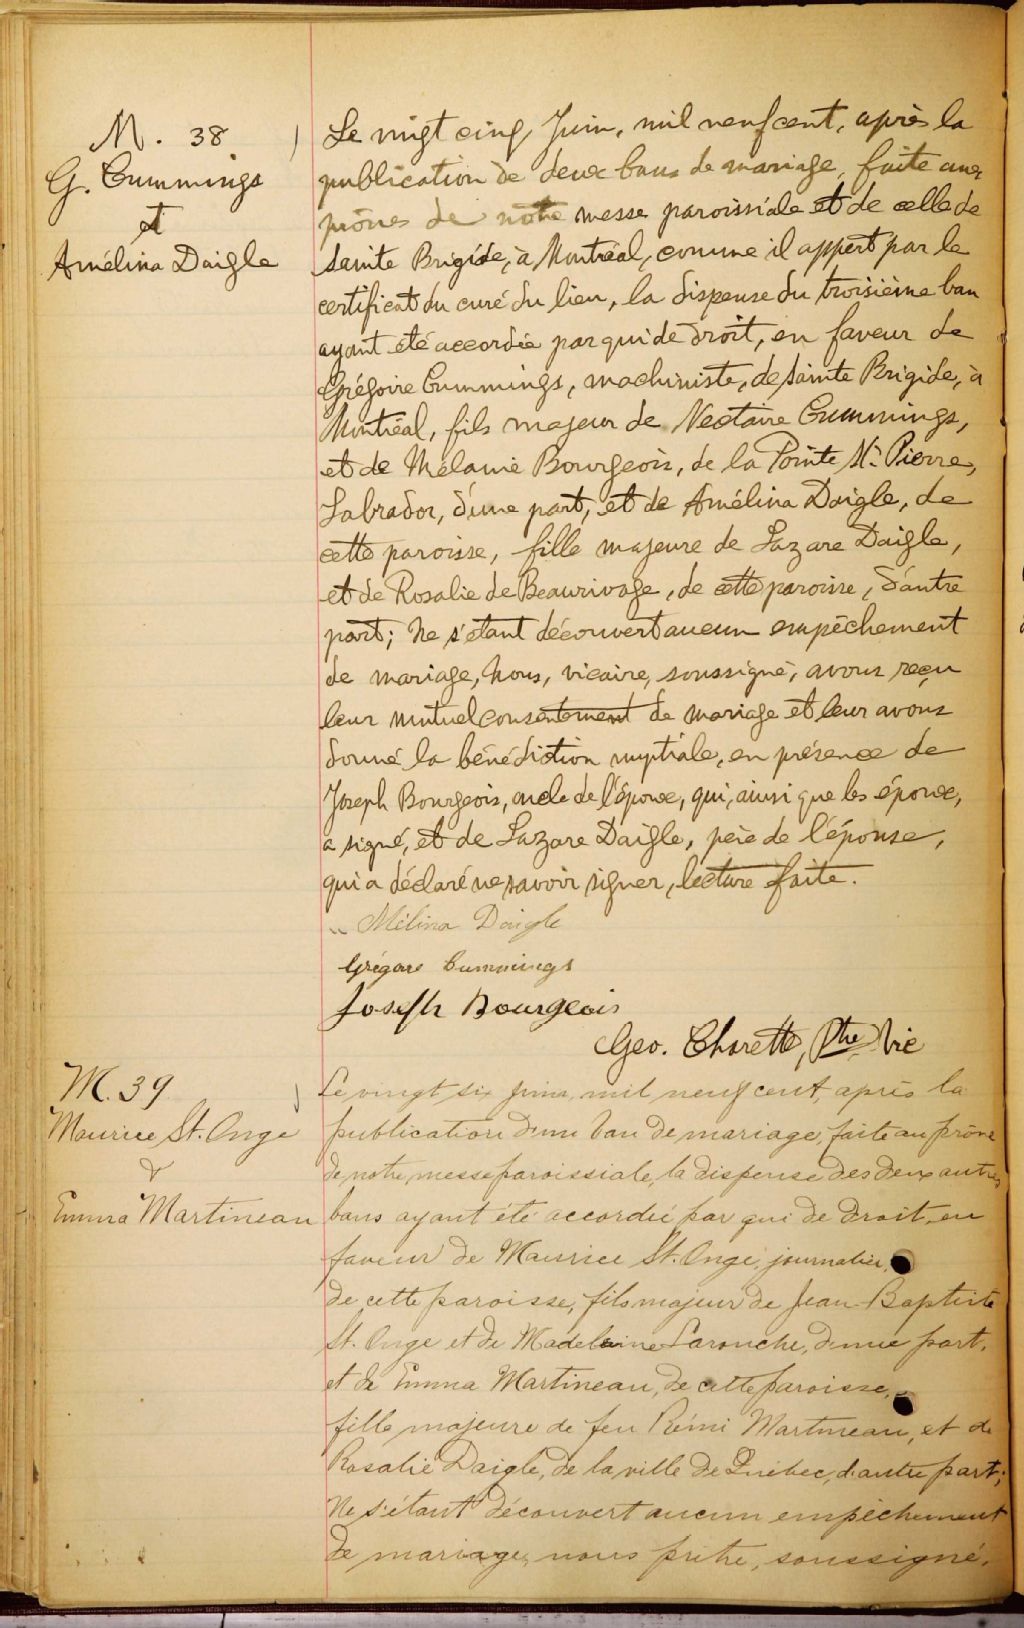 M. 38
G. Cummings
et
Amélina Daigle
Le vingt cinq Juin, mil neuf cent, après la
publication de deux bans de mariage, faite aux
prônes de notre messe paroissiale et de celle de
Sainte Brigide, à Montréal, comme il appert par le
certificat du curé du lieu, la dispense du troisième ban
ayant été accordée par qui de droit, en faveur de
Grégoire Cummings, machiniste, de Sainte Brigide, à
Montréal, fils majeur de Nectaire Cummings,
et de Mélanie Bourgeois, de la Pointe St. Pierre,
Labrador, d'une part, et de Amélina Daigle, de
cette paroisse, fille majeure de Lazare Daigle,
et de Rosalie de Beaurivage, de cette paroisse, d'autre
part; Ne s'étant découvert aucun empêchement
de mariage, Nous, vicaire, soussigné, avons reçu
leur mutuel consentement de mariage et leur avons
donné la bénédiction nuptiale, en présence de
Joseph Bourgeois, oncle de l'époux, qui, ainsi que les époux,
a signé, et de Lazare Daigle, père de l'épouse,
qui a déclaré ne savoir signer, lecture faite.
Mélina Daigle
Grégore Cummings
Joseph Bourgeois
Geo. Chorette, Ptre Vic
M. 39
Maurice St. Onge
&
Emma Martineau
Le vingt six juin, mil neuf cent, après la
publication d'un ban de mariage, faite au prône
de notre messe paroissiale, la dispense des deux autres
bans ayant été accordée par qui de droit, en
faveur de Maurice St. Onge, journalier,
de cette paroisse, fils majeur de Jean-Baptiste
St. Onge et de Madeleine Larouche, d'une part,
et de Emma Martineau, de cette paroisse,
fille majeure de feu Rémi Martineau, et de
Rosalie Daigle, de la ville de Québec, d'autre part;
Ne s'étant découvert aucun empêchement
de mariage, nous prêtre, soussigné,